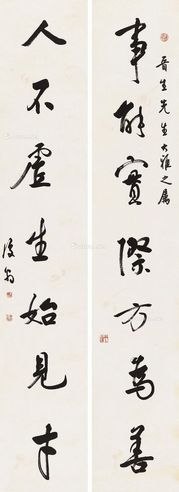 晋生先生大雅之属
事能实際方為善
人不虛生始見才